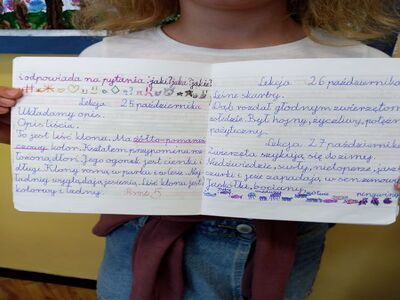 i odpowiada na pytania: jaki? jaka? jakie?
Lekcja 25 października
Układamy opis.
Opis liścia.
To jest liść klonu. Ma żółto-pomarań-
czowy kolor. Kształtem przypomina roz
łożoną dłoń. Jego ogonek jest cienki i
długi. Klony rosną w parku i w lesie. Naj
ładniej wyglądają jesienią. Liść klonu jest
kolorowy i ładny.
Lekcja 26 października
Leśne skarby.
Dąb rozdał głodnym zwierzętom
żołędzie. Był hojny, życzliwy,
pożyteczny.
Lekcja 27 października
Zwierzęta szykują się do zimy.
Niedźwiedzie, susły, nietoperze,
i jeże zapadają w sen zimowy
Jaskółki, bociany,
pingwiny